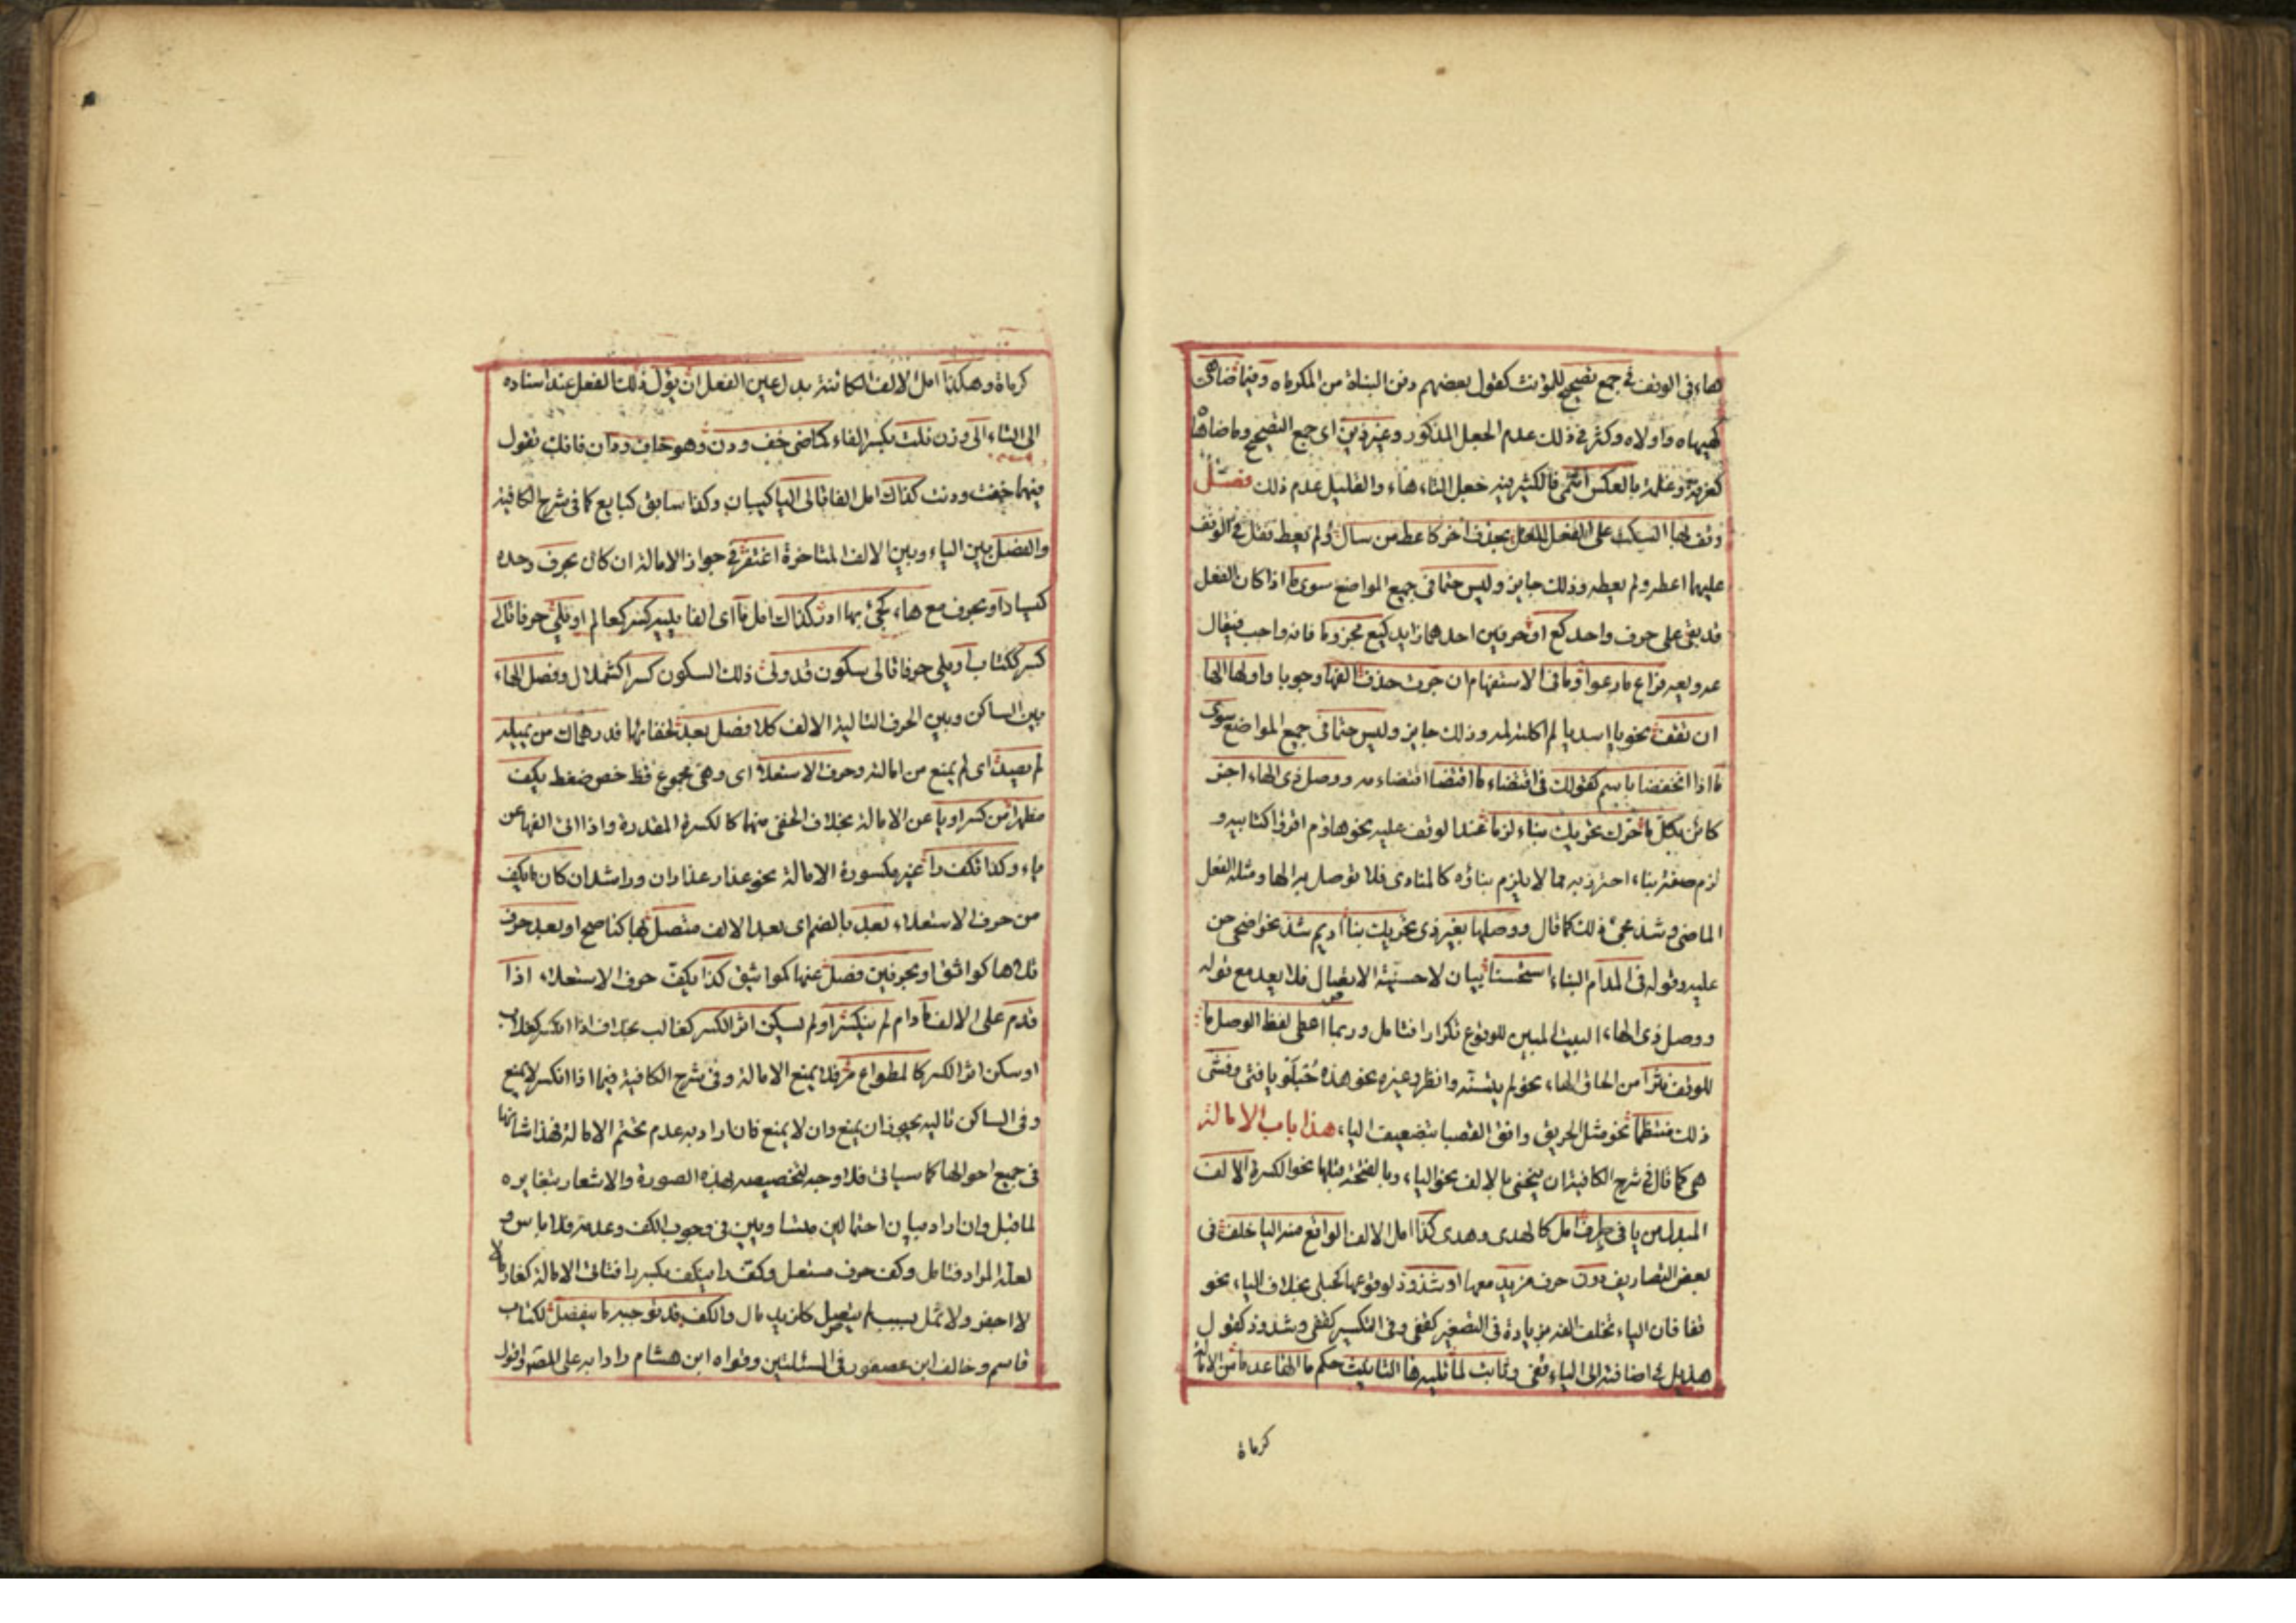 هاء في الوقف في جمع تصحيح للمؤنث كقول بعضهم دفن البناه من المكرماه وفيما ضاهى
كهيهاه واولاه وكثر في ذلك عدم الجعل المذكور وغير ذين اى جمع التصحيح وما ضاهاه
كغرفة وغلمة بالعكس انتمى فالكثير فيه جعل التاء هاء والقليل عدم ذلك فصل
وقف بها السكت على الفعل المعل بحذف اخر كاعط من سال ولم يعط تقل في الوقف
عليهما اعطه ولم يعطه وذلك جايز وليس حتما في جميع المواضع سوى ما اذا كان الفعل
قد بقى على حرف واحد كع او حرفين احدهما زايد كيع مجزوما فانه واجب فيقال
عه ويعه فراع ما رعوا وما في الاستفهام ان جرت حذف الفها وجوبا واولها الها
ان تقف نحو يا اسديا لم اكلته لمه وذلك جايز وليس حتما في جميع المواضع سوى
ما اذا انخفضا باسم كقولك في اقتضاء ما اقتضا اقتضاء مه ووصل ذى الهاء اجز
كائن بكل ما حرك تحريك بناء لزما عند الوقف عليه نحو هاؤم اقرؤا كتابيه و
لزم صفة بناء احترز به مما لا يلزم بناؤه كالمنادى فلا توصل به الها ومثله الفعل
الماضى وشذ مجئ ذلك كما قال ووصلها بغير ذى تحريك بنا اديم شذ نحو اضحى من
عليه وقوله في المدام البناء استحسنا بيان لاحسنية الايصال فلا يعد مع قوله
ووصل ذى الهاء البيت المبين للوقوع تكرارا فتامل وربما اعطى لفظ الوصل ما
للوقف نثرا من الحاق الهاء نحو لم يتسنه وانظر وغيره نحو هذه حبلو يا فتى وفشى
ذلك منتظما نحو مثل الحريق وافق القصبا بتضعيف الياء هذا باب الامالة
هى كما قال في شرح الكافية ان ينحى بالالف نحو الياء وبالفتحة قبلها نحو الكسرة الالف
المبدل من يا في طرف امل كالهدى وهدى كذا امل الالف الواقع منه اليا خلف في
بعض التصاريف دون حرف مزيد معها او شذوذ لوقوعها كحبلى بخلاف الياء نحو
قفا فان الياء تخلف الفه بزيادة في التصغير كقفى وفي التكسير كقفى وشذوذ كقول
هذيل في اضافته الى الياء قفى وثابت لما تليه ها التانيث حكم ما الها عدما من الامالة
كرماة
كرماة وهكذا امل الالف الكائنة بدل عين الفعل ان يؤل ذلك الفعل عند اسناده
الى التاء الى وزن فلت بكسر الفاء كماضى خف ودن وهو خاف ودان فانك تقول
فيهما خفت ودنت كذاك امل الفا تالى اليا كبيان وكذا سابق كبايع كما في شرح الكافية
والفصل بين الياء وبين الالف المتاخرة اغتفر في جواز الامالة ان كان بحرف وحده
كيسار او بحرف مع هاء كجئ بها ادر كذاك امل ما اى الفا يليه كسر كعالم او يلي حرفا تالى
كسر ككتاب او يلي حرفا تالى سكون قد ولى ذلك السكون كسرا كشملال وفصل الهاء
بين الساكن وبين الحرف التالية الالف كلا فصل يعد لخفائها فدرهماك من يميله
لم يصد اى لم يمنع من امالته وحرف الاستعلا اى وهى مجموع قظ خص ضغط يكف
مظهرا من كسر او يا عن الامالة بخلاف الخفى منها كالكسرة المقدرة واذا اتى الفها عن
ياء وكذا تكف را غير مكسورة الامالة نحو عذار عذاران وراشد ان كان ما يكف
من حرف الاستعلاء بعد بالضم اى بعد الالف متصل بها كناصح او بعد حرف
تلاها كواثق او بحرفين فصل عنها كمواثيق كذا يكف حرف الاستعلاء اذا
قدم على الالف ما دام لم ينكسر او لم يسكن اثر الكسر كغالب بخلاف اذا انكسر كغلاب
او سكن اثر الكسر كالمطواع مر فلا يمنع الامالة وفي شرح الكافية فيما اذا انكسر لا يمنع
وفي الساكن تاليه يجوز ان يمنع وان لا يمنع فان اراد به عدم تحتم الامالة فهذا شانها
في جميع احوالها كما سياتى فلا وجه لتخصيصه بهذه الصورة والاشعار بتغايره
لما قبل وان اراد بيان احتمالين متساويين في وجوب الكف وعدمه فلا باس و
لعله المراد فتامل وكف حرف مستعل وكف را ينكف بكسر را فتاتى الامالة كغارما
لا اجفو ولا تمل لسبب لم يتصل كان يد مال والكف قد يوجبه ما ينفصل لكتاب
قاسم وخالف ابن عصفور في المسئلتين وقواه ابن هشام رادا به على المصّ واقول